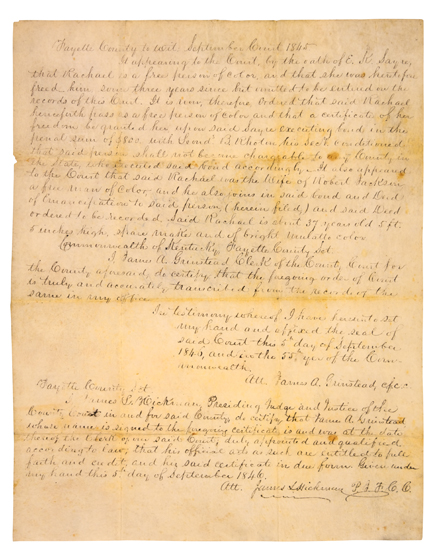 Fayette County to wit September Court 1845
It appearing to the Court, by the oath of E. K. Sayre,
that Rachael is a free person of color, and that she was heretofore
freed him some three years since but omitted to be entered on the
records of this Court. It is now, therefore ordered that said Rachael
henceforth pass as a free person of Color and that a certificate of her
freedom be granted her upon said Sayre Executing bond in the
penal sum of $500, with his Security conditioned
that said person shall not become chargeable to any County in
the State, who Executed said bond accordingly. It also appeared
to the Court that said Rachael was the Wife of Robert Jackson
a free man of Color and he also joins in said bond and Deed
of Emancipation to said person (herein filed) and said Deed
ordered to be recorded Said Rachael is about 37 years old 5 ft.
inches high, spare made and of bright mulatto color
Commonwealth of Kentucky Fayette County Sct
I, James A. Grinstead Clerk of the County Court for
the County aforesaid, do certify that the foregoing order of Court
is truly and accurately transcribed from the records of the
same in my office
In testimony whereof I have hereunto set
my hand and affixed the seal of
said Court this 5th day of September
1846, and in the 55th year of the Com-
monwealth.
Att. James A. Grinstead, cfcc
Fayette County Sct.
I James L. Hickman, Presiding Judge and Justice of the
County Court in and for said County, do certify that James A. Grinstead
whose name is signed to the foregoing certificate is and was at the date
thereof the Clerk of our said County duly appointed and qualified
according to law, that his official acts as such are entitled to full
faith and credit, and his said certificate in due form Given under
my hand this 5th day of September 1846
Att. James L Hickman P. J. F. C. C.